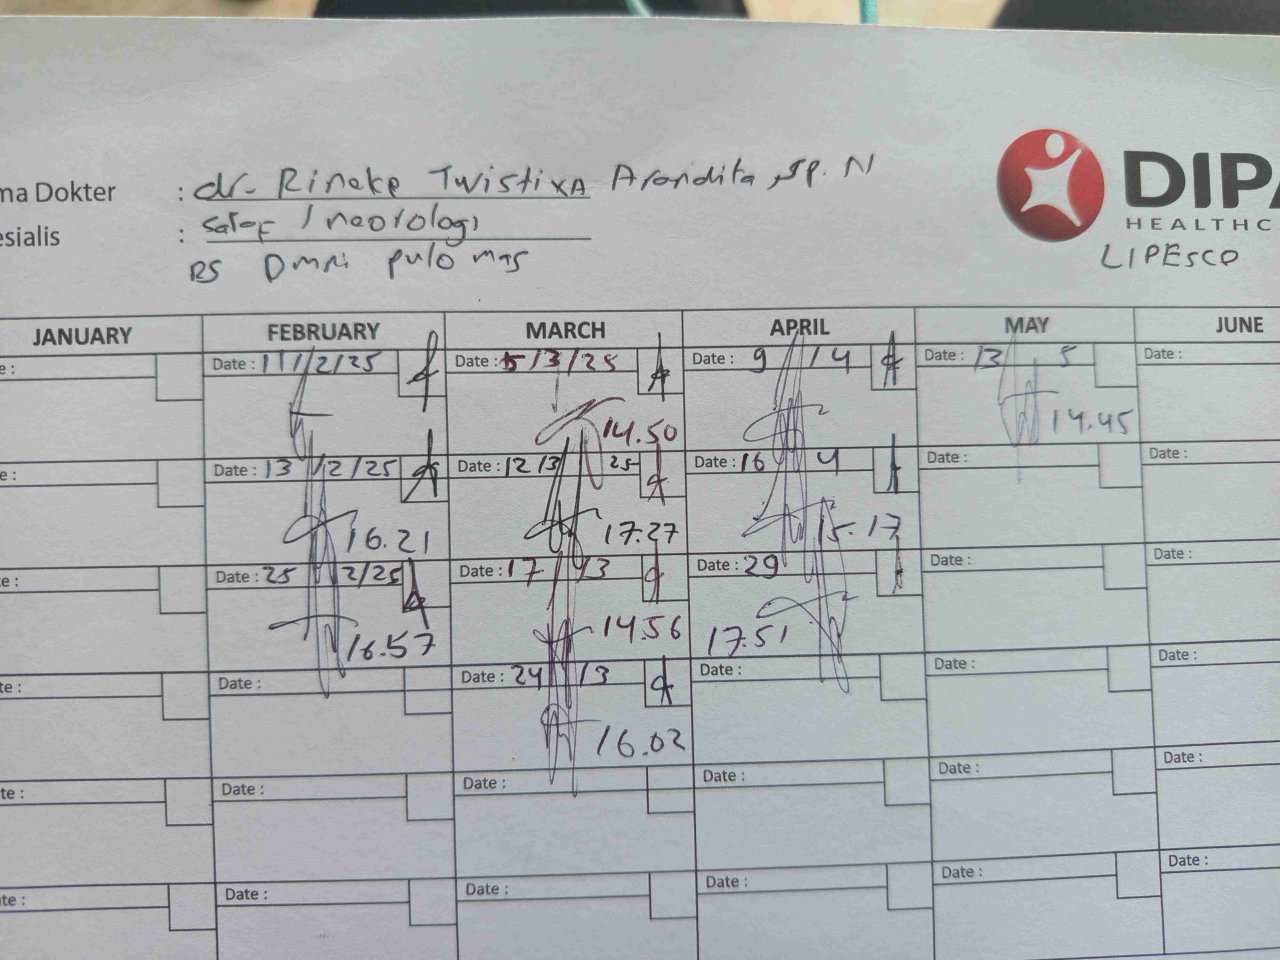 ma Dokter : dr. Rineke Twistixa Arandita, Sp. N
esialis : Saraf / neorologi
RS Omni pulo mas
DIPA
HEALTHC
LIPESCO
JANUARY FEBRUARY MARCH APRIL MAY JUNE
e : Date : 11/2/25 Date : 5/3/25 Date : 9/4 Date : 13 5 Date :
14.50 14.45
e : Date : 13/2/25 Date : 12/3/25 Date : 16 4 Date : Date :
16.21 17.27 15.17
e : Date : 25/2/25 Date : 17/3 Date : 29 Date : Date :
16.57 14.56 17.51
te : Date : Date : 24/3 Date : Date : Date :
16.02
te : Date : Date : Date : Date : Date :
te : Date : Date : Date : Date : Date :